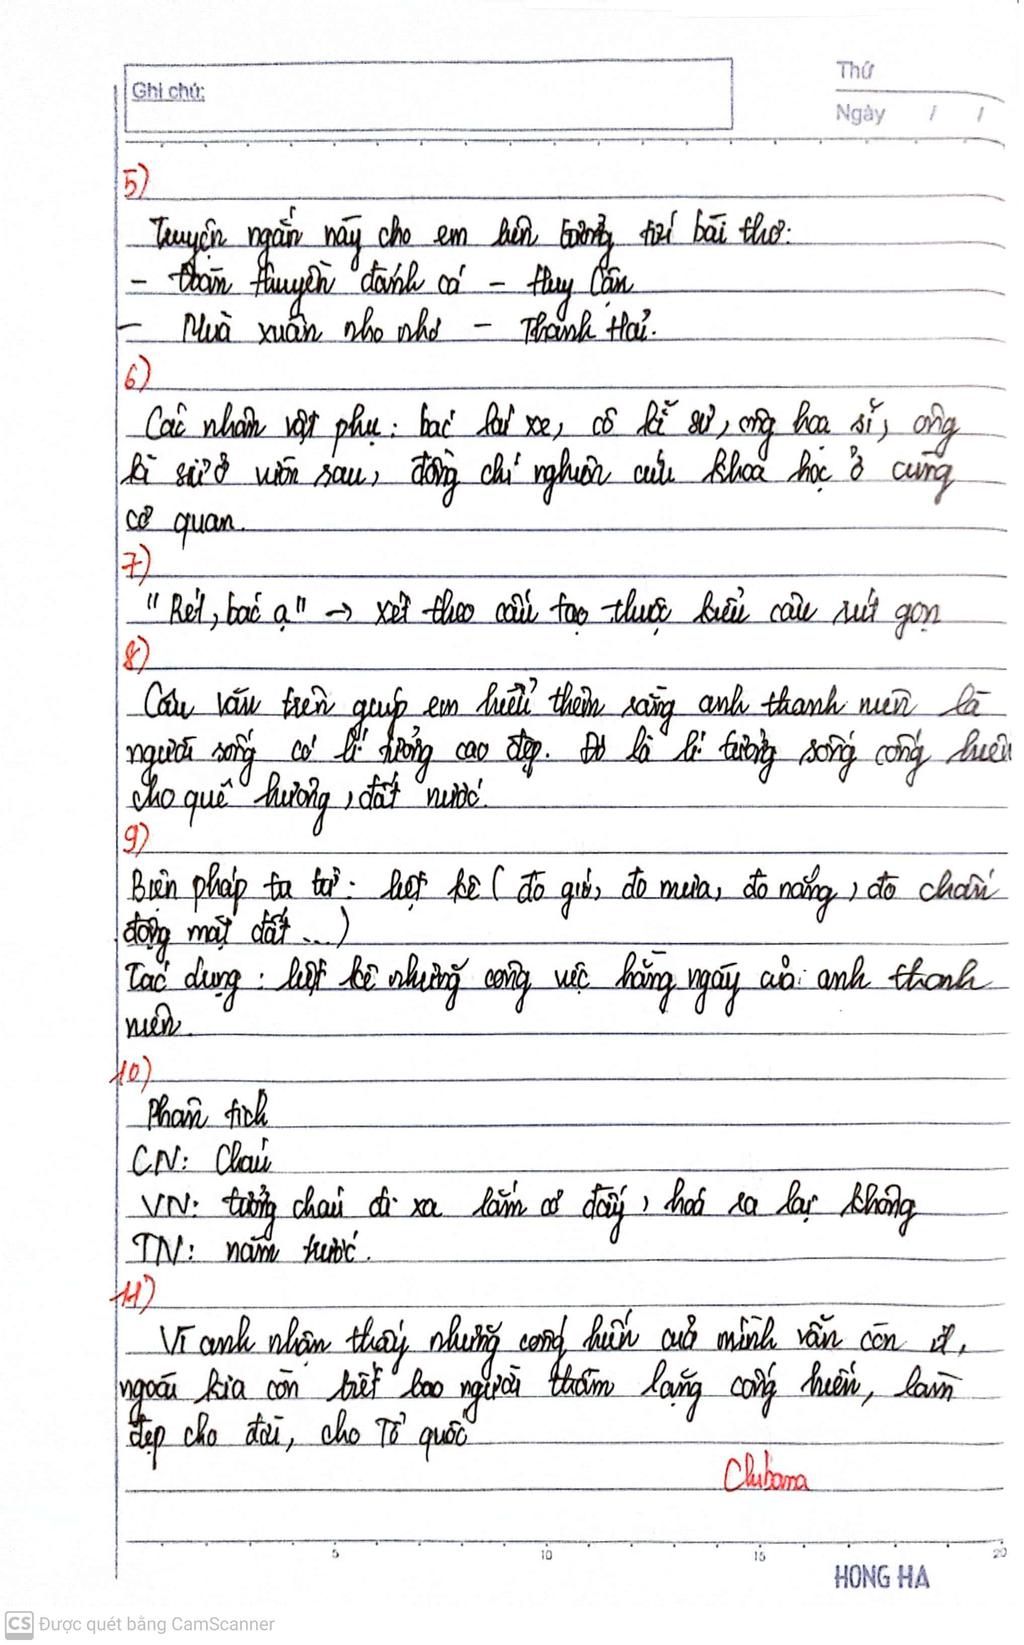 Ghi chú:
Thứ
Ngày / /
5)
Truyện ngắn này cho em liên tưởng tới bài thơ:
- Đoàn thuyền đánh cá - Huy Cận
- Mùa xuân nho nhỏ - Thanh Hải.
6)
Các nhân vật phụ: bác lái xe, cô kĩ sư, ông hoạ sĩ, ông
kĩ sư ở vườn rau, đồng chí nghiên cứu khoa học ở cùng
cơ quan.
7)
"Rét, bác ạ" → xét theo cấu tạo thuộc kiểu câu rút gọn
8)
Câu văn trên giúp em hiểu thêm rằng anh thanh niên là
người sống có lí tưởng cao đẹp. Đó là lí tưởng sống cống hiến
cho quê hương, đất nước.
9)
Biện pháp tu từ: liệt kê (đo gió, đo mưa, đo nắng, đo chấn
động mặt đất ...)
Tác dụng: liệt kê những công việc hằng ngày của anh thanh
niên.
10)
Phân tích
CN: Cháu
VN: tưởng cháu đi xa lắm cơ đấy, hoá ra lại không
TN: năm trước.
11)
Vì anh nhận thấy những cống hiến của mình vẫn còn ít,
ngoài kia còn biết bao người thầm lặng cống hiến, làm
đẹp cho đời, cho Tổ quốc
Chibana
5 10 15 20
HONG HA
CS Được quét bằng CamScanner